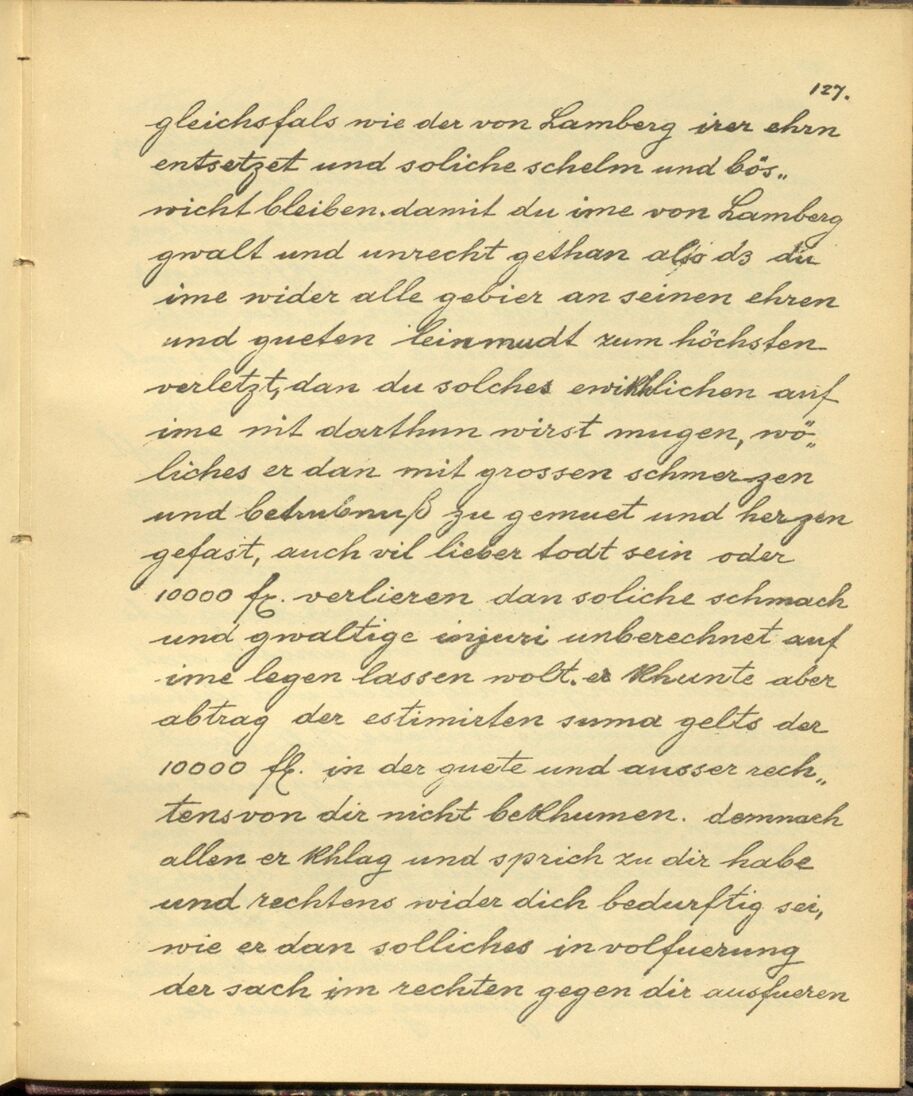 127.
gleichsfals wie der von Lamberg irer ehrn
entsetzet und soliche schelm und bös„
wicht bleiben. damit du ime von Lamberg
gwalt und unrecht gethan also dz du
ime wider alle gebier an seinen ehren
und gueten leinmudt zum höchsten
verletzt, dan du solches ewikhlichen auf
ime nit darthun wirst mugen, wö„
liches er dan mit grossen schmerzen
und betrubnuß zu gemuet und herzen
gefast, auch vil lieber todt sein oder
10000 fl. verlieren dan soliche schmach
und gwaltige injuri unberechnet auf
ime legen lassen wolt. er khunte aber
abtrag der estimirten suma gelts der
10000 fl. in der guete und ausser rech„
tens von dir nicht bekhumen. demnach
allen er khlag und sprich zu dir habe
und rechtens wider dich bedurftig sei,
wie er dan solliches in volfuerung
der sach im rechten gegen dir ausfueren